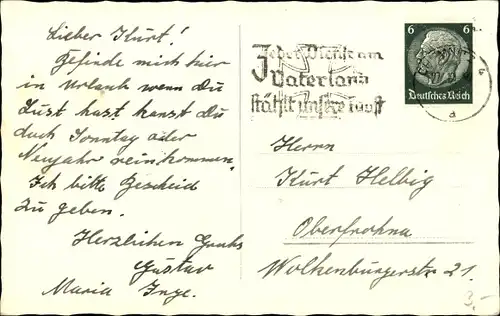 Lieber Kurt!
Befinde mich hier
in Urlaub wenn Du
Lust hast kanst Du
doch Sonntag oder
Neujahr reinkommen.
Ich bitte Bescheid
zu geben.
Herzlichen Gruhs
Gustav
Maria Inge.
Jeder Pfennig am
Vaterland
stählt unsre
6 6
Deutsches Reich
a
Herrn
Kurt Helbig
Oberfrohna
Wolkenburgerstr. 21.
3.-